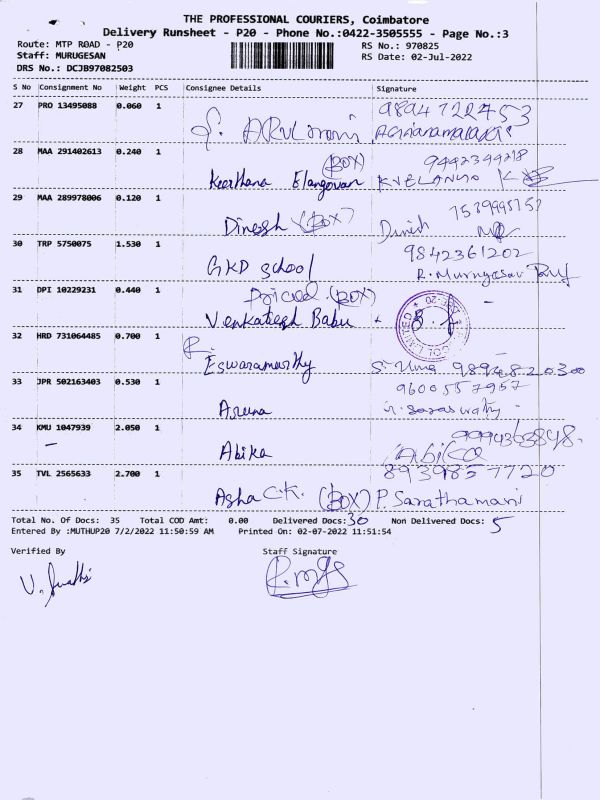 THE PROFESSIONAL COURIERS, Coimbatore
Delivery Runsheet - P20 - Phone No.:0422-3505555 - Page No.:3
Route: MTP ROAD - P20 RS No.: 970825
Staff: MURUGESAN RS Date: 02-Jul-2022
DRS No.: DCJB97082503
S No Consignment No Weight PCS Consignee Details Signature
27 PRO 13495088 0.060 1
9894722453
28 MAA 291402613 0.240 1 (BOX) 9442344218
Keerthana Elangovan
29 MAA 289978006 0.120 1
Dinesh (BOX) Dinish
30 TRP 5750075 1.530 1 9842361202
GKD School R. Murugesan
31 DPI 10229231 0.440 1 (BOX)
Venkatesh Babu
32 HRD 731064485 0.700 1
Eswaramurthy S. Uma 9894820300
33 JPR 502163403 0.530 1 9600557957
Aruna
34 KMU 1047939 2.050 1 9994363848.
Abika Abika
35 TVL 2565633 2.700 1 8939857720
Asha C.K. (BOX) P. Sarathamani
Total No. Of Docs: 35 Total COD Amt: 0.00 Delivered Docs: 30 Non Delivered Docs: 5
Entered By :MUTHUP20 7/2/2022 11:50:59 AM Printed On: 02-07-2022 11:51:54
Verified By Staff Signature